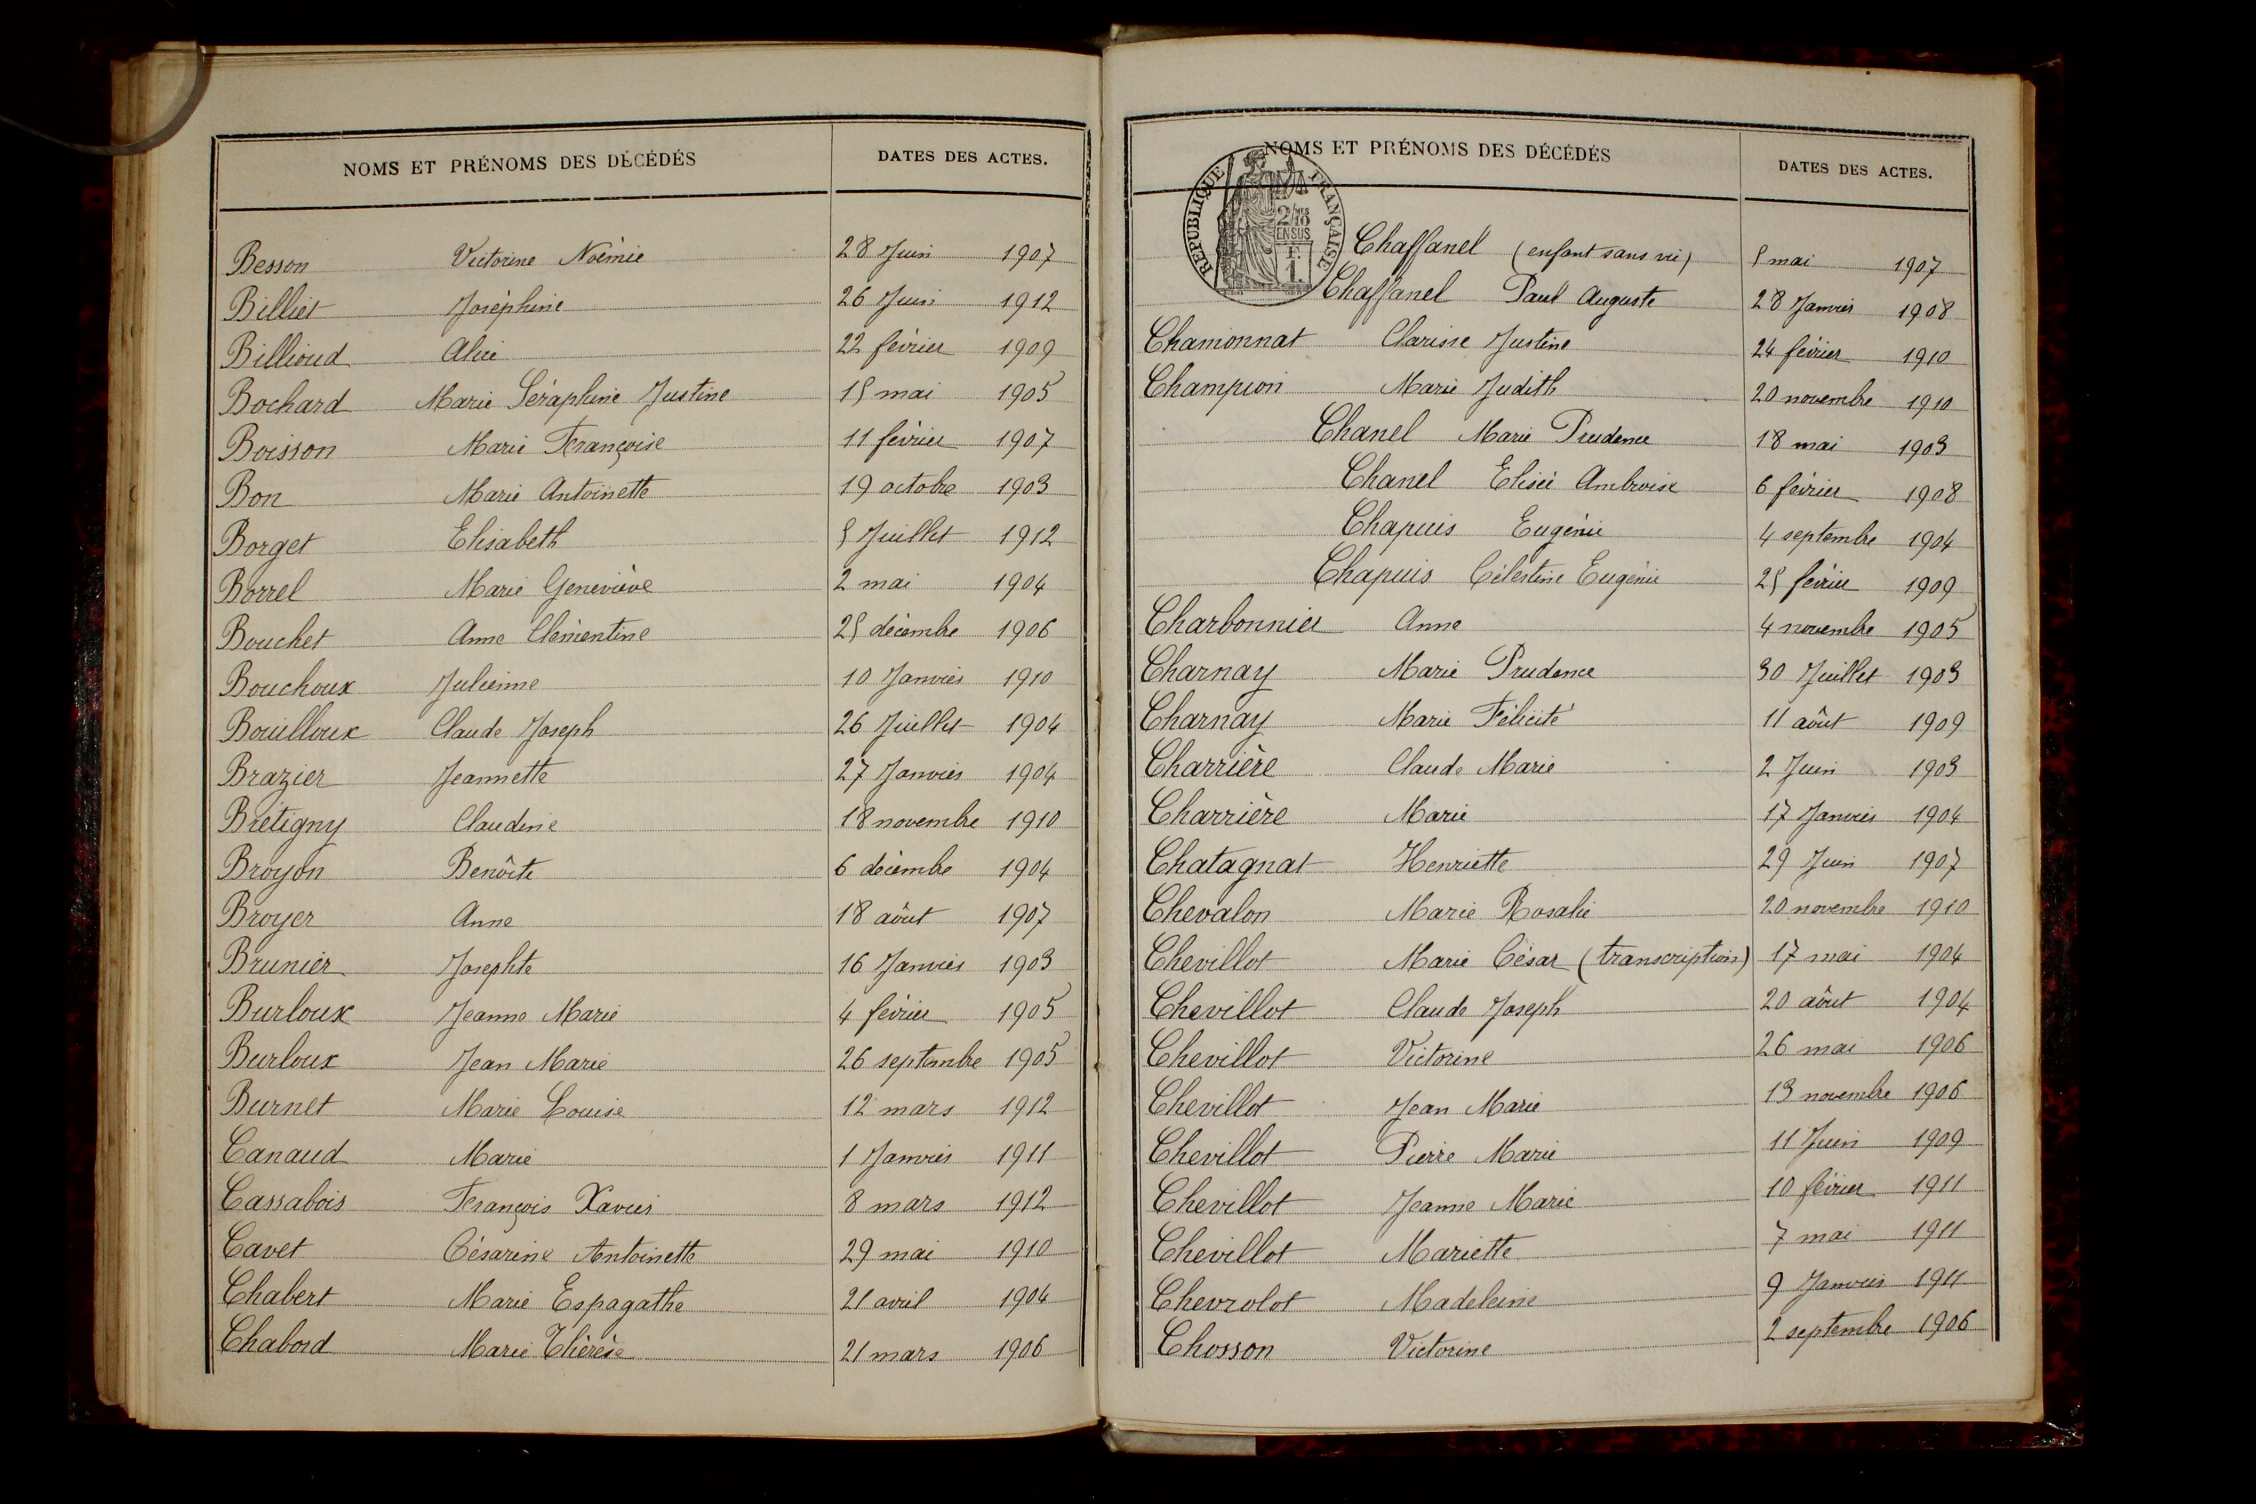 NOMS ET PRÉNOMS DES DÉCÉDÉS DATES DES ACTES.
Besson Victorine Noémie 28 Juin 1907
Billiet Joséphine 26 Juin 1912
Billioud Alice 22 février 1909
Bochard Marie Séraphine Justine 15 mai 1905
Boisson Marie Françoise 11 février 1907
Bon Marie Antoinette 19 octobre 1903
Borget Elisabeth 5 Juillet 1912
Borrel Marie Geneviève 2 mai 1904
Bouchet Anne Clémentine 25 décembre 1906
Bouchoux Julienne 10 Janvier 1910
Bouilloux Claude Joseph 26 Juillet 1904
Brazier Jeannette 27 Janvier 1904
Brétigny Claudine 18 novembre 1910
Broyon Benoîte 6 décembre 1904
Broyer Anne 18 août 1907
Brunier Josephte 16 Janvier 1903
Burloux Jeanne Marie 4 février 1905
Burloux Jean Marie 26 septembre 1905
Burnet Marie Louise 12 mars 1912
Canaud Marie 1 Janvier 1911
Cassabois François Xavier 8 mars 1912
Cavet Césarine Antoinette 29 mai 1910
Chabert Marie Espagathe 21 avril 1904
Chabord Marie Thérèse 21 mars 1906
NOMS ET PRÉNOMS DES DÉCÉDÉS DATES DES ACTES.
RÉPUBLIQUE FRANÇAISE
2/10
EN SUS
F.
1.
Chaffanel (enfant sans vie) 5 mai 1907
Chaffanel Paul Auguste 28 Janvier 1908
Chamonnat Clarisse Justine 24 février 1910
Champion Marie Judith 20 novembre 1910
Chanel Marie Prudence 18 mai 1903
Chanel Elisée Ambroise 6 février 1908
Chapuis Eugénie 4 septembre 1904
Chapuis Célestine Eugénie 25 février 1909
Charbonnier Anne 4 novembre 1905
Charnay Marie Prudence 30 Juillet 1903
Charnay Marie Félicité 11 août 1909
Charrière Claude Marie 2 Juin 1903
Charrière Marie 17 Janvier 1904
Chatagnat Henriette 29 Juin 1907
Chevalon Marie Rosalie 20 novembre 1910
Chevillot Marie César (transcription) 17 mai 1904
Chevillot Claude Joseph 20 août 1904
Chevillot Victorine 26 mai 1906
Chevillot Jean Marie 13 novembre 1906
Chevillot Pierre Marie 11 Juin 1909
Chevillot Jeanne Marie 10 février 1911
Chevillot Mariette 7 mai 1911
Chevrolot Madeleine 9 Janvier 1911
Chosson Victorine 2 septembre 1906